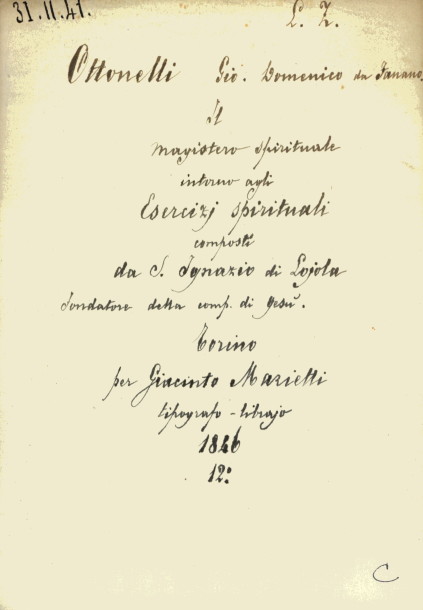 31.11.41.
L. Z.
Ottonelli Gio. Domenico da Fanano.
Il
magistero spirituale
intorno agli
Esercizj spirituali
composti
da S. Ignazio di Lojola
fondatore della comp. di Gesù.
Torino
per Giacinto Marietti
tipografo-librajo
1846
12º
C